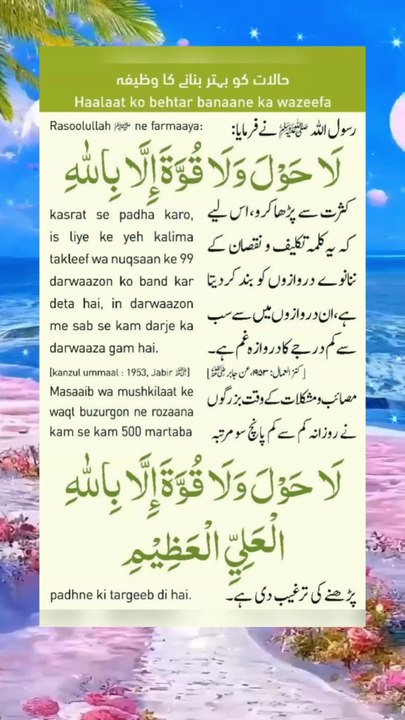 حالات کو بہتر بنانے کا وظیفہ
Haalaat ko behtar banaane ka wazeefa
Rasoolullah ﷺ ne farmaaya:
رسول اللہ ﷺ نے فرمایا:
لَا حَوْلَ وَلَا قُوَّةَ إِلَّا بِاللهِ
kasrat se padha karo,
is liye ke yeh kalima
takleef wa nuqsaan ke 99
darwaazon ko band kar
deta hai, in darwaazon
me sab se kam darje ka
darwaaza gam hai.
[kanzul ummaal : 1953, Jabir ؓ]
Masaaib wa mushkilaat ke
waqt buzurgon ne rozaana
kam se kam 500 martaba
کثرت سے پڑھا کرو، اس لیے
کہ یہ کلمہ تکلیف و نقصان کے
ننانوے دروازوں کو بند کر دیتا
ہے، ان دروازوں میں سے سب
سے کم درجے کا دروازہ غم ہے۔
[کنز العمال: ۱۹۵۳، عن جابرؓ]
مصائب و مشکلات کے وقت بزرگوں
نے روزانہ کم سے کم پانچ سو مرتبہ
لَا حَوْلَ وَلَا قُوَّةَ إِلَّا بِاللهِ
الْعَلِيِّ الْعَظِيْمِ
padhne ki targeeb di hai.
پڑھنے کی ترغیب دی ہے۔